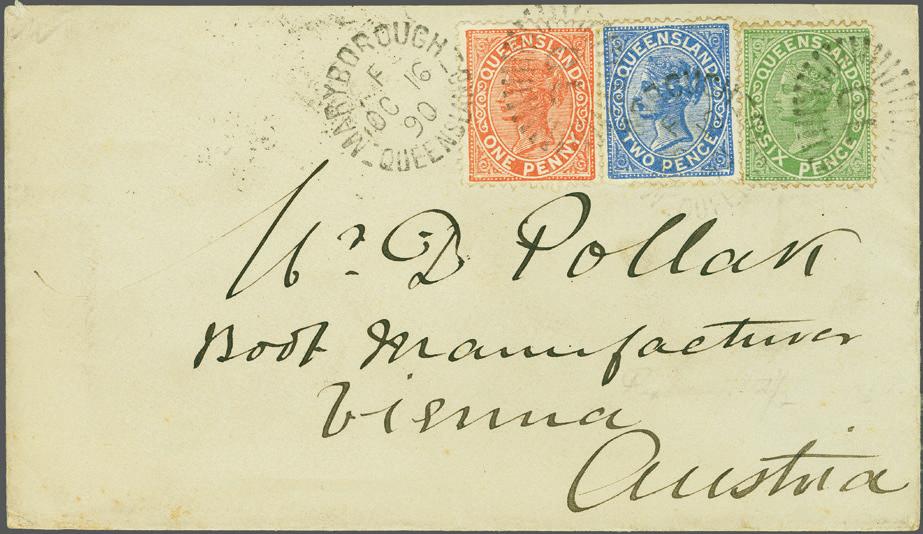 MARYBOROUGH
F
OC 16
90
QUEENSLAND
QUEENSLAND
ONE PENNY
QUEENSLAND
TWO PENCE
QUEENSLAND
SIX PENCE
Mr. D Pollak
Boot Manufacturer
Vienna
Austria